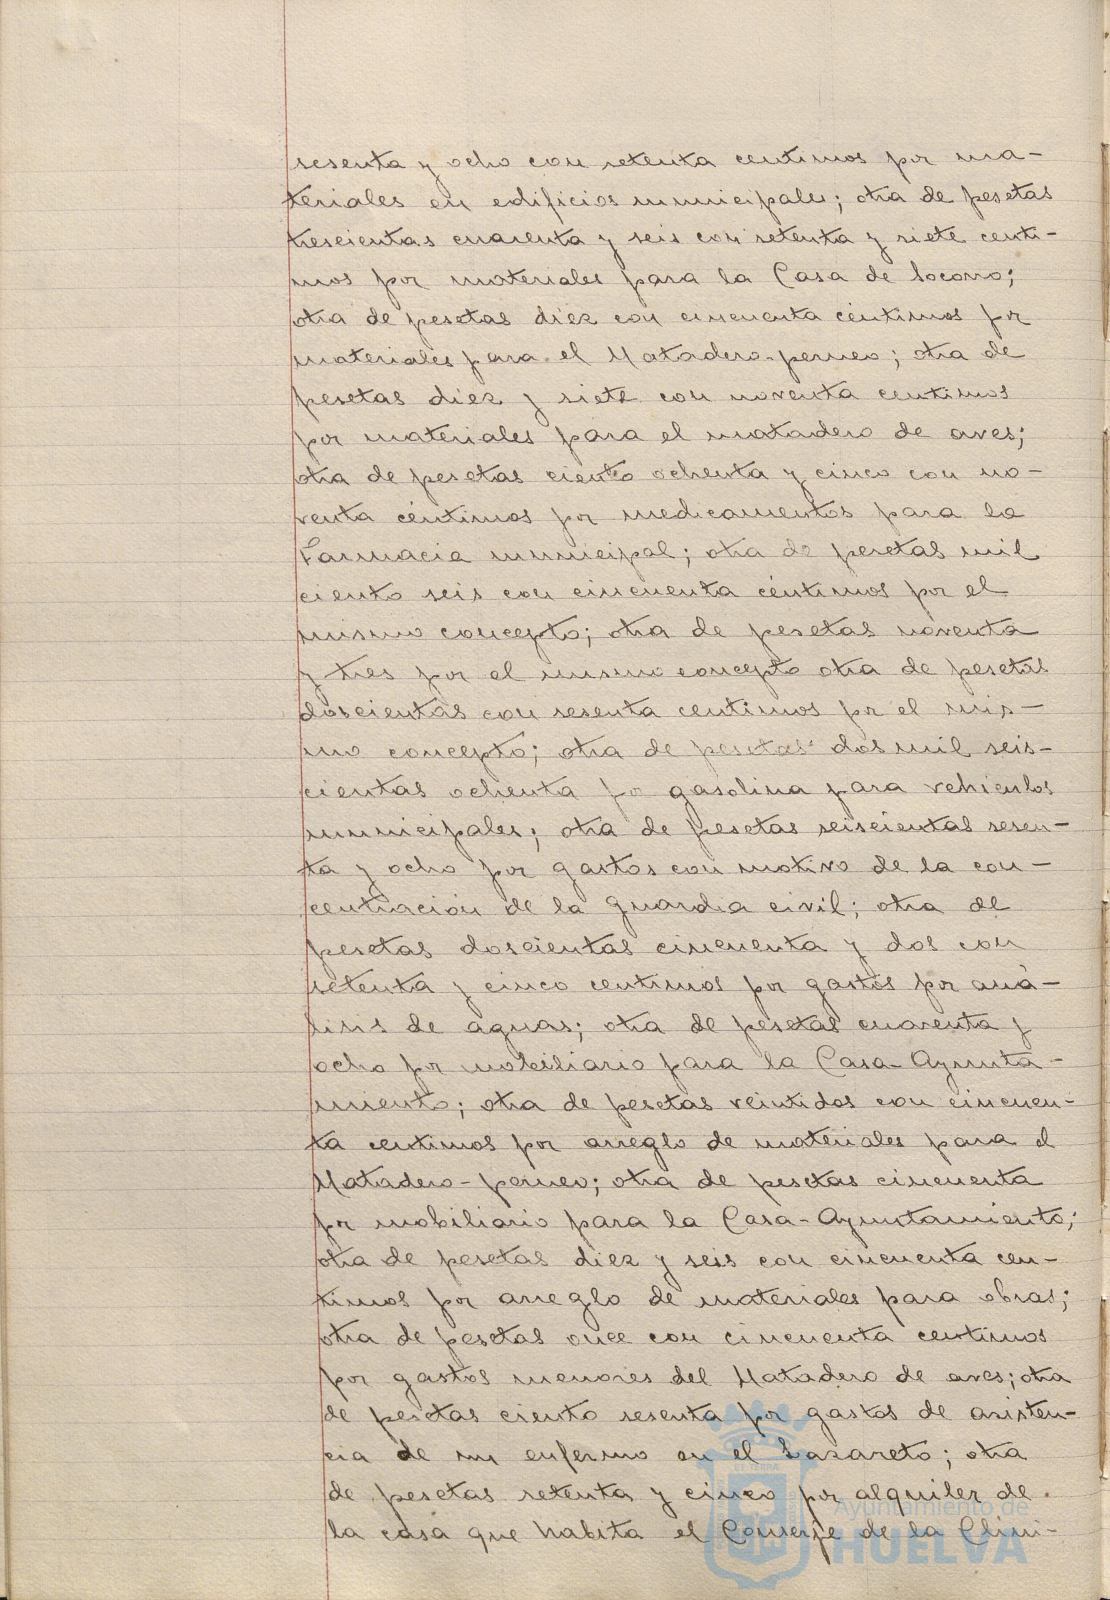 sesenta y ocho con setenta centimos por ma-
teriales en edificios municipales; otra de pesetas
trescientas cuarenta y seis con setenta y siete centi-
mos por materiales para la Casa de Socorro;
otra de pesetas diez con cincuenta céntimos por
materiales para el Matadero-perneo; otra de
pesetas diez y siete con noventa centimos
por materiales para el matadero de aves;
otra de pesetas ciento ochenta y cinco con no-
venta céntimos por medicamentos para la
Farmacia municipal; otra de pesetas mil
ciento seis con cincuenta céntimos por el
mismo concepto; otra de pesetas noventa
y tres por el mismo concepto otra de pesetas
doscientas con sesenta centimos por el mis-
mo concepto; otra de pesetas dos mil seis-
cientas ochenta po gasolina para vehiculos
municipales; otra de pesetas seiscientas sesen-
ta y ocho por gastos con motivo de la con-
centracion de la guardia civil; otra de
pesetas doscientas cincuenta y dos con
setenta y cinco centimos por gastos por aná-
lisis de aguas; otra de pesetas cuarenta y
ocho por mobiliario para la Casa-Ayunta-
miento; otra de pesetas veintidos con cincuen-
ta centimos por arreglo de materiales para el
Matadero-perneo; otra de pesetas cincuenta
por mobiliario para la Casa-Ayuntamiento;
otra de pesetas diez y seis con cincuenta cen-
timos por arreglo de materiales para obras;
otra de pesetas once con cincuenta centimos
por gastos menores del Matadero de aves; otra
de pesetas ciento sesenta por gastos de asisten-
cia de un enfermo en el Lazareto; otra
de pesetas setenta y cinco por alquiler de
la casa que habita el Conserje de la Clini-
Ayuntamiento de
HUELVA